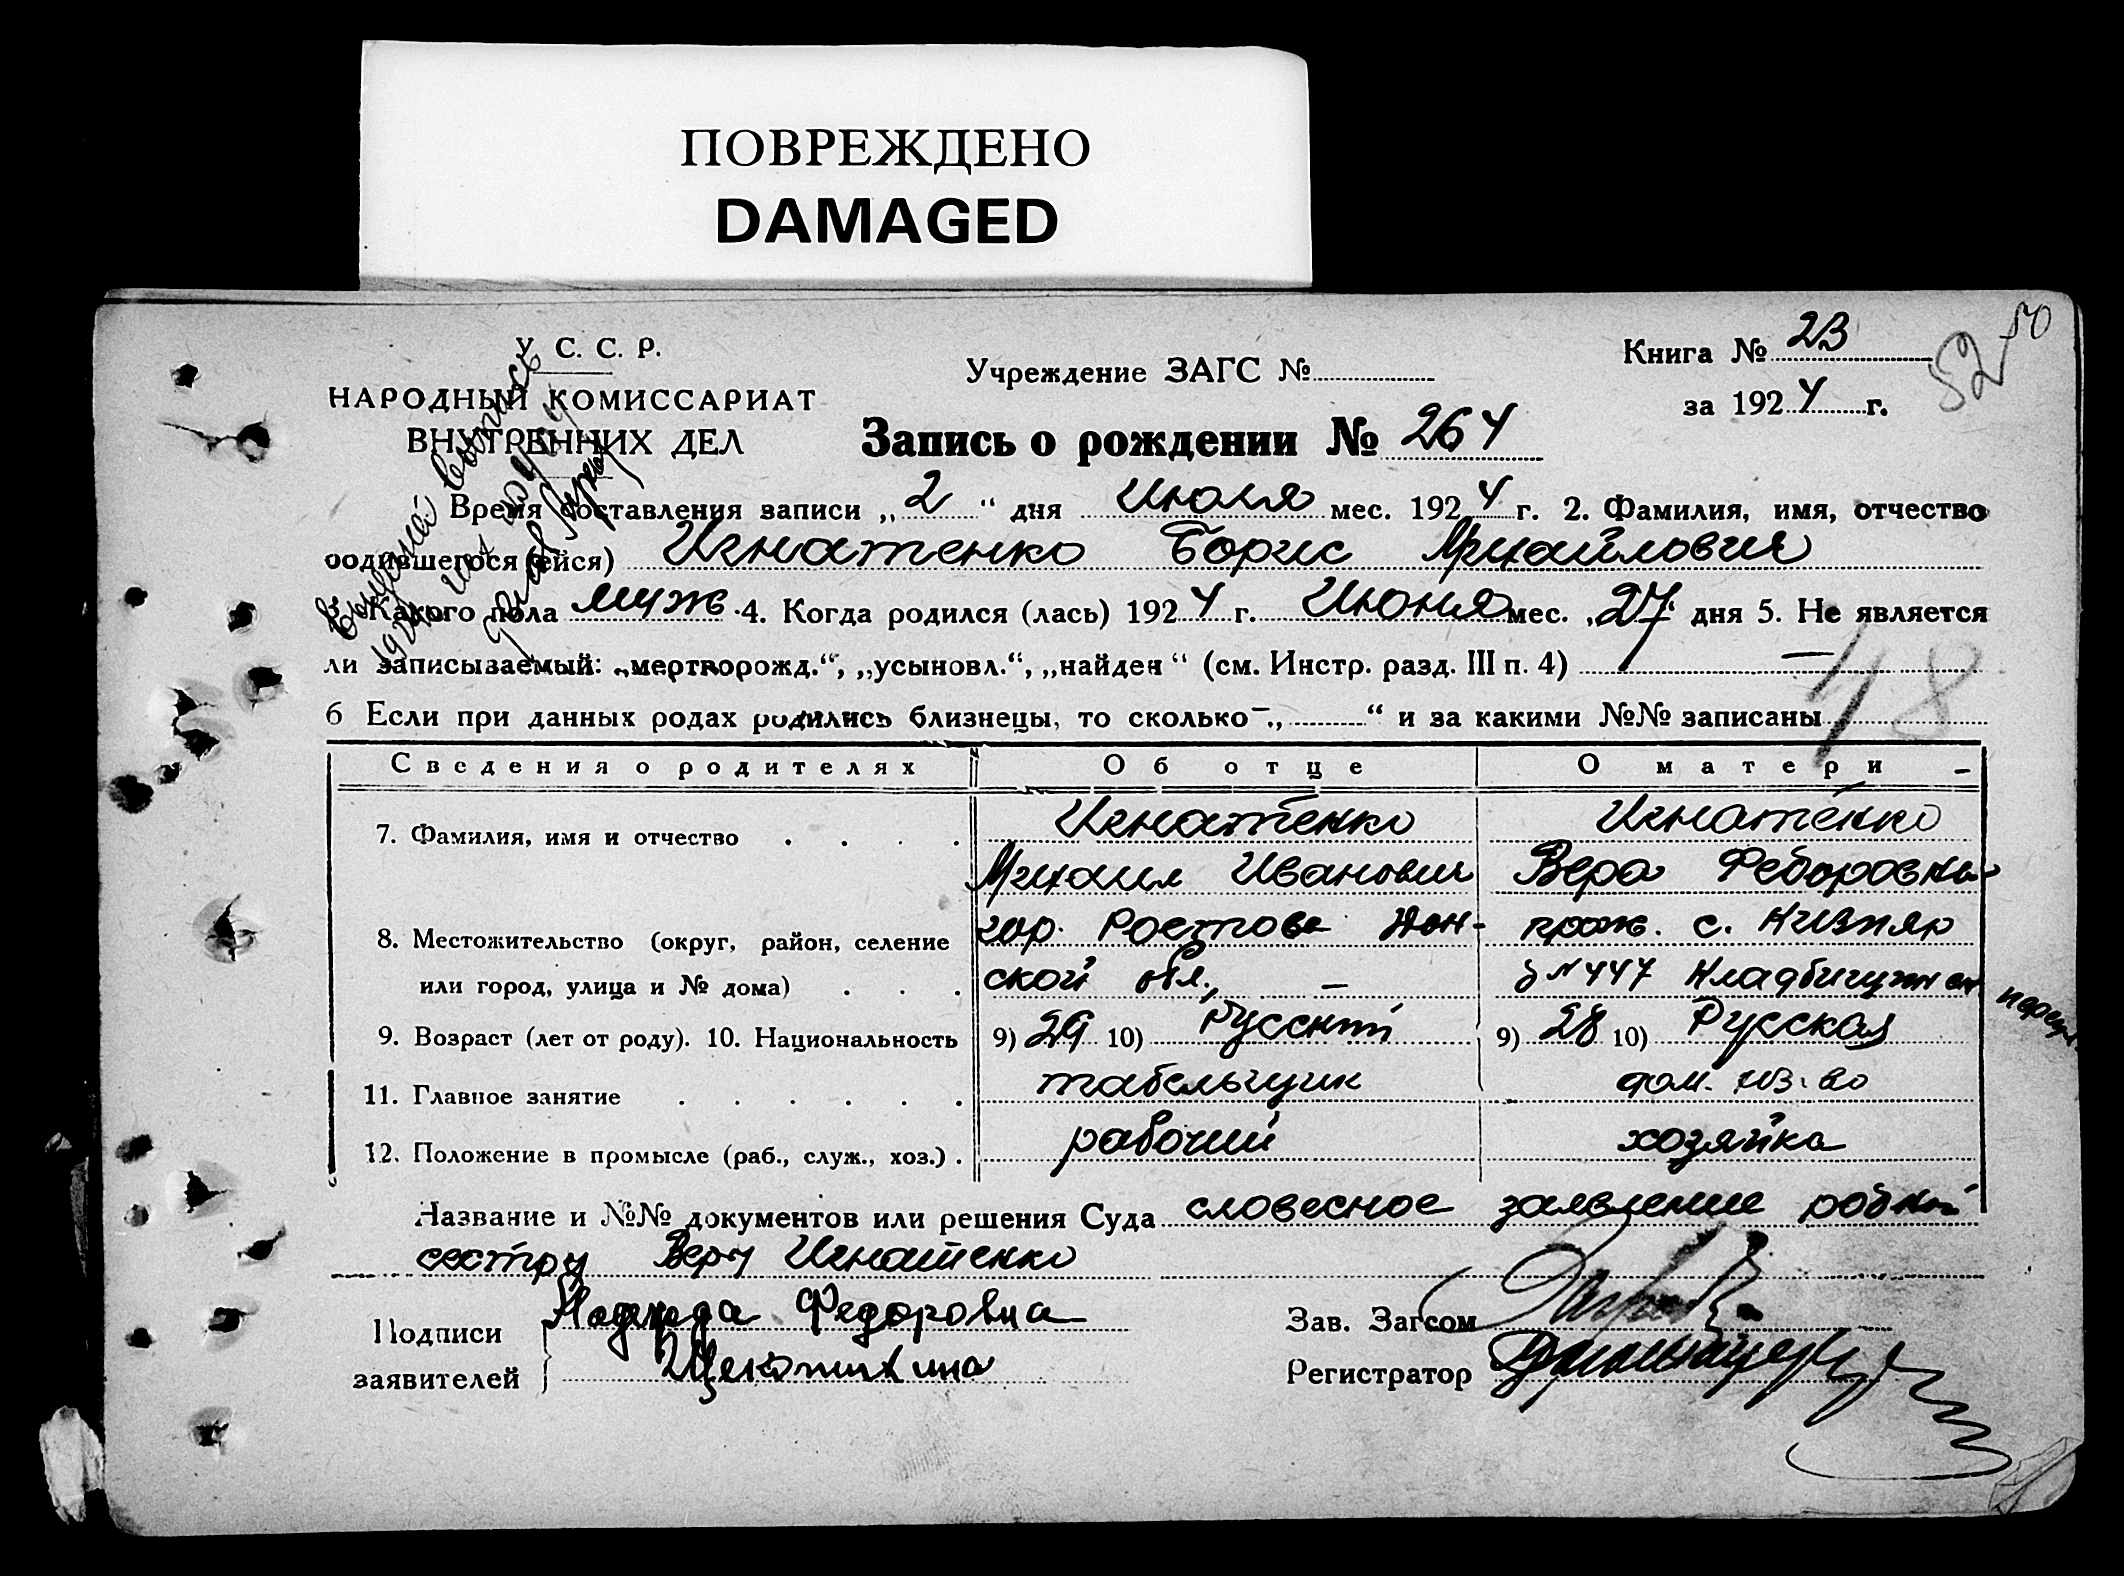 ПОВРЕЖДЕНО
DAMAGED
У. С. С. Р.
НАРОДНЫЙ КОМИССАРИАТ
ВНУТРЕННИХ ДЕЛ
Учреждение ЗАГС №
Книга № 23
за 1924 г.
52
50
Запись о рождении № 264
Время составления записи „2“ дня Июля мес. 1924 г. 2. Фамилия, имя, отчество
родившегося (ейся) Игнатенко Борис Михайлович
Какого пола муж. 4. Когда родился (лась) 1924 г. Июня мес. „27“ дня 5. Не является
ли записываемый: „мертворожд.“, „усыновл.“, „найден“ (см. Инстр. разд. III п. 4) —
18
6 Если при данных родах родились близнецы, то сколько – „ “ и за какими №№ записаны
Сведения о родителях Об отце О матери –
7. Фамилия, имя и отчество . . . . Игнатенко Игнатенко
Михаил Иванович Вера Федоровна
8. Местожительство (округ, район, селение гор. Ростова Дон- прож. с.
или город, улица и № дома) . . . ской обл., — д №447
9. Возраст (лет от роду). 10. Национальность 9) 29 10) Русский 9) 28 10) Русская
11. Главное занятие . . . . . . табельщик дом. хоз-во
12. Положение в промысле (раб., служ., хоз.) . рабочий хозяйка
Название и №№ документов или решения Суда словесное заявление родной
сестры Веры Игнатенко
Подписи заявителей Надежда Федоровна
Щекотихина
Зав. Загсом
Регистратор